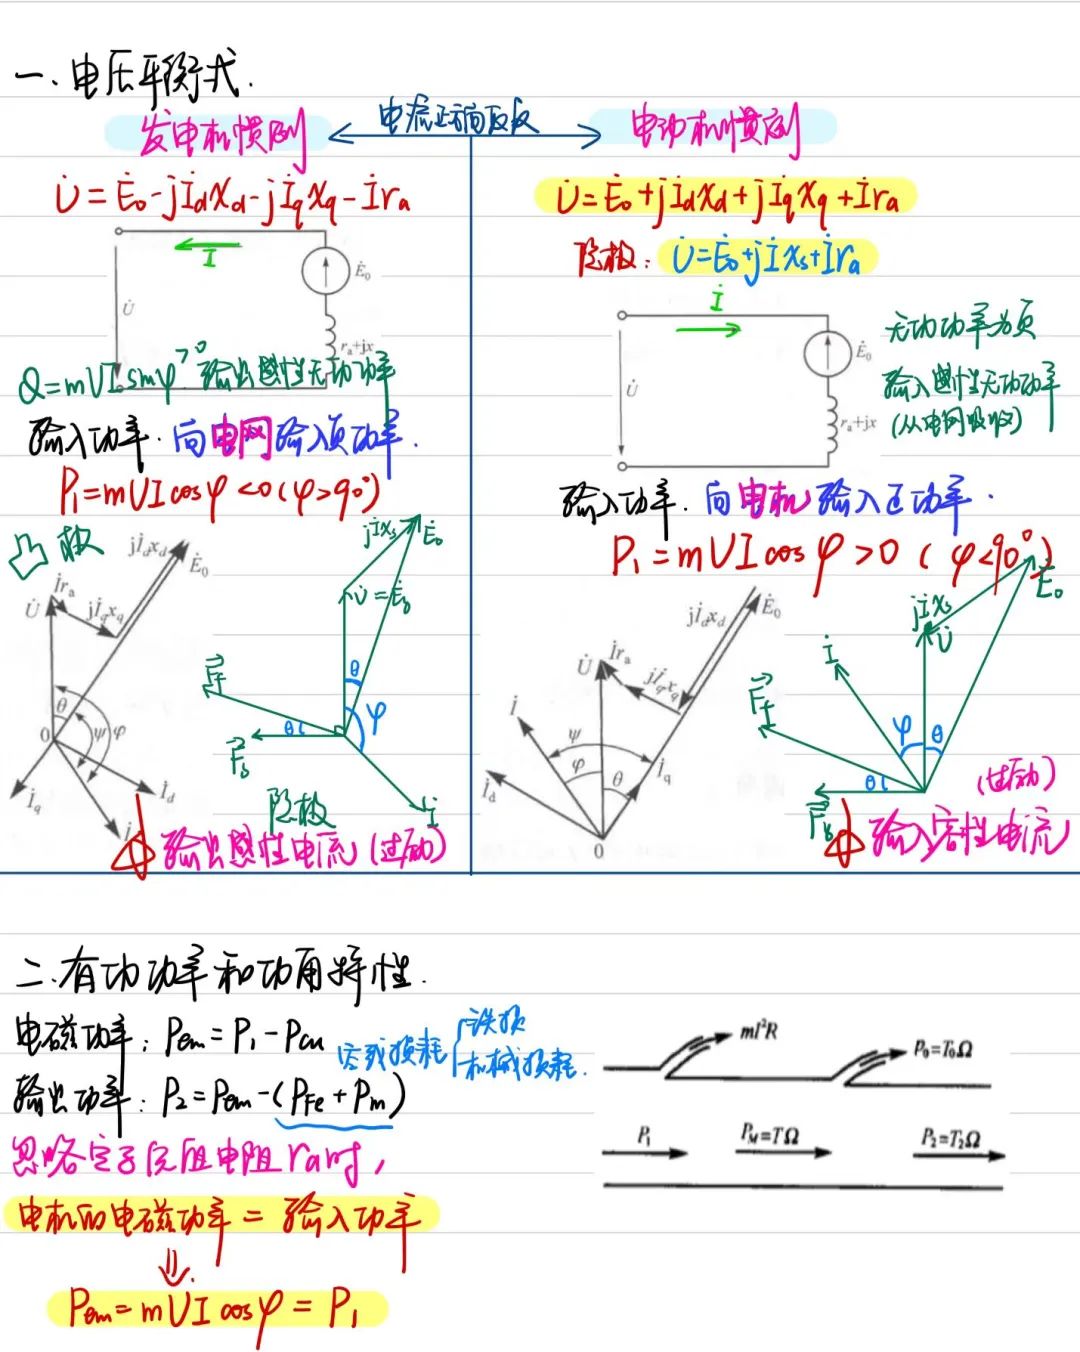 一.电压平衡式.
发电机惯例
电流正方向反
电动机惯例
U̇=Ė₀-jİdXd-jİqXq-İra
İ
U̇
Ė₀
ra+jx
Q=mUIsinφ>0 输出感性无功功率
输入功率.向电网输入负功率.
P₁=mUIcosφ<0(φ>90°)
凸极
jİdxd
Ė₀
İra
U̇
jİqxq
θ
ψ
φ
0
İq
İd
İ
jİxs
Ė₀
U̇=Ė₀
θ
φ
Ff
Fδ
θ
隐极
İ
输出感性电流(过励)
U̇=Ė₀+jİdXd+jİqXq+İra
隐极:U̇=Ė₀+jİXs+İra
İ
U̇
Ė₀
ra+jx
无功功率为负
输入感性无功功率
(从电网吸收)
输入功率.向电机输入正功率.
P₁=mUIcosφ>0(φ<90°)
jİdxd
Ė₀
U̇
İra
jİqxq
İ
ψ
φ
θ
İq
İd
0
jİxs
Ė₀
U̇
İ
Ff
φ
θ
θ
Fδ
(过励)
输入容性电流
二.有功功率和功角特性.
电磁功率:Pem=P₁-Pcu
空载损耗{铁损
机械损耗.
输出功率:P₂=Pem-(PFe+Pm)
忽略定子
电阻ra时,
电机的电磁功率=输入功率
⇓
Pem=mUIcosφ=P₁
mI²R
P₀=T₀Ω
P₁
PM=TΩ
P₂=T₂Ω